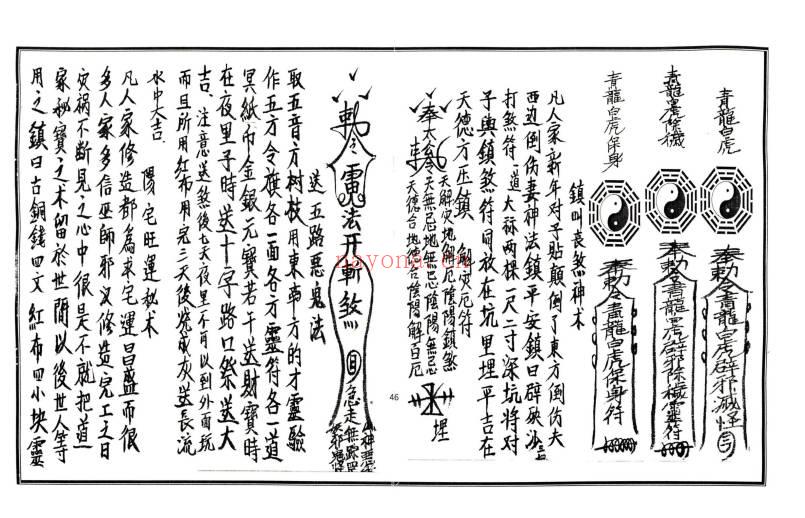 青龍白虎
奉勅令青龍白虎辟邪滅怪
青龍白虎除穢
奉勅令青龍白虎辟邪除穢靈符
青龍白虎保身
奉勅令青龍白虎保身符
鎮叫喪煞神术
凡人家新年对子贴顛倒了東方倒伤夫
西边倒伤妻神法鎮平安鎮曰辟砂
打煞符一道大秤两棵一尺二寸深坑將对
子與鎮煞符同放在坑里埋平吉在
天德方压鎮
解灾厄符
天解灾地解厄陰陽鎮煞
奉太令天無忌地無忌陰陽無忌
天德合地德合陰陽解百厄
埋
46
勅令雷法开斬煞
急走無踪
送五路惡鬼法
取五音方树枝用東南方的才靈驗
作五方令旗各一面各方靈符各一道
冥紙币金銀元寶若干送財寶時
在夜里子時送十字路口祭送大
吉注意送煞後七天夜里不可以到外面玩
而且所用红布用完三天後燒成灰送長流
水中大吉
陽宅旺運秘术
凡人家修造都為求宅運昌盛而很
多人家多信巫師邪义修造完工之日
灾禍不断見之心中很是不就把道
家秘寶之术留於世間以後世人等
用之鎮曰古銅錢四文紅布四小块靈
nayona.cn